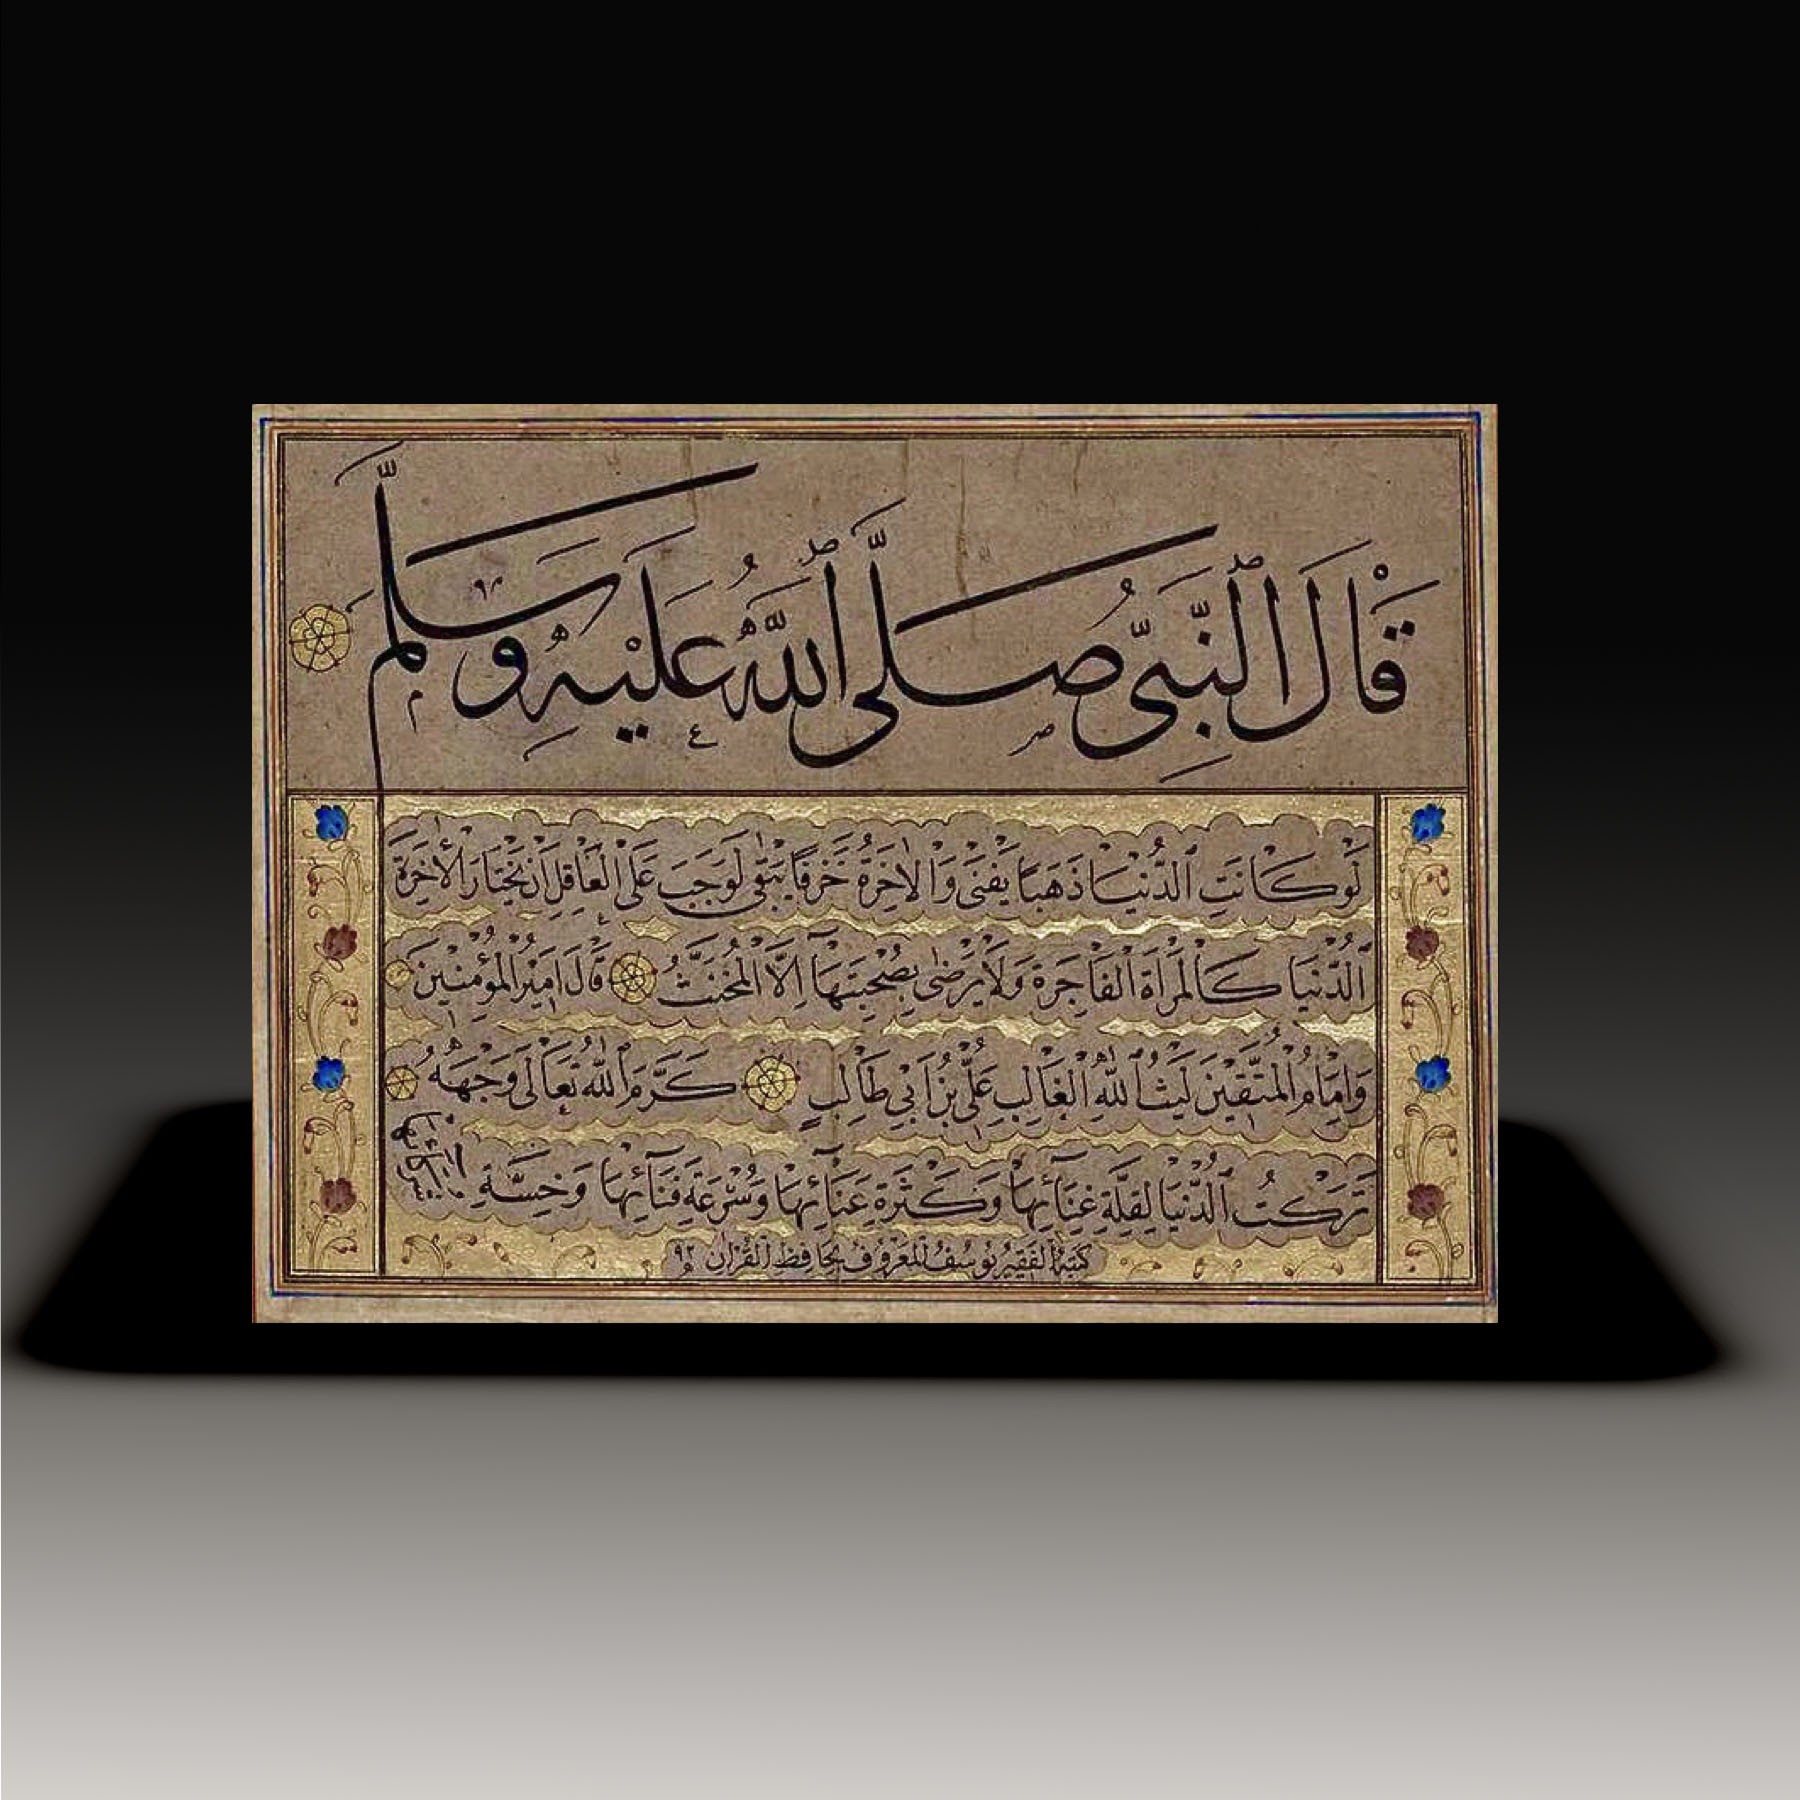 قَالَ النَّبِيُّ صَلَّى اللّٰهُ عَلَيْهِ وَسَلَّمَ
لَوْ كَانَتِ الدُّنْيَا ذَهَبًا يَفْنَى وَالْاٰخِرَةُ خَزَفًا يَبْقٰى لَوَجَبَ عَلَى الْعَاقِلِ اَنْ يَخْتَارَ الْاٰخِرَةَ
اَلدُّنْيَا كَالْمَرْأَةِ الْفَاجِرَةِ وَلَا يَرْضٰى بِصُحْبَتِهَا اِلَّا الْمُخَنَّثُ قَالَ اَمِيرُ الْمُؤْمِنِينَ
وَاِمَامُ الْمُتَّقِينَ لَيْثُ اللّٰهِ الْغَالِبِ عَلِيُّ بْنُ اَبِي طَالِبٍ كَرَّمَ اللّٰهُ تَعَالٰى وَجْهَهُ
تَرَكْتُ الدُّنْيَا لِقِلَّةِ غِنَائِهَا وَكَثْرَةِ عَنَائِهَا وَسُرْعَةِ فَنَائِهَا وَخِسَّةِ شُرَكَائِهَا
كتبه الفقير يوسف المعروف بحافظ القرآن